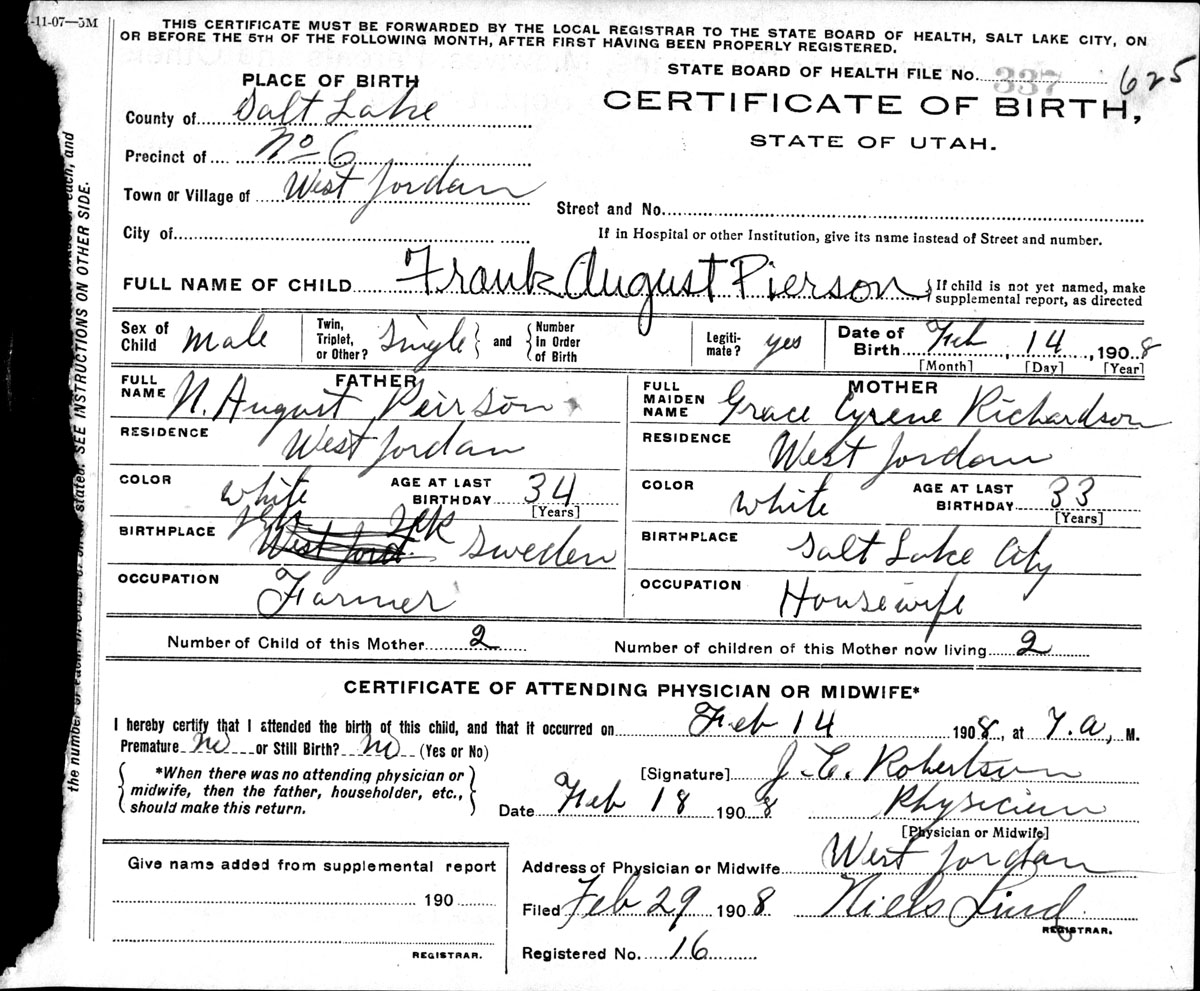 -11-07—5M
THIS CERTIFICATE MUST BE FORWARDED BY THE LOCAL REGISTRAR TO THE STATE BOARD OF HEALTH, SALT LAKE CITY, ON
OR BEFORE THE 5TH OF THE FOLLOWING MONTH, AFTER FIRST HAVING BEEN PROPERLY REGISTERED.
PLACE OF BIRTH
STATE BOARD OF HEALTH FILE No. 337 625
County of Salt Lake
CERTIFICATE OF BIRTH,
STATE OF UTAH.
Precinct of No 6
Town or Village of West Jordan
Street and No.
City of
If in Hospital or other Institution, give its name instead of Street and number.
FULL NAME OF CHILD Frank August Pierson
{If child is not yet named, make
supplemental report, as directed
Sex of Child male
Twin, Triplet, or Other? Single } and { Number In Order of Birth
Legiti-mate? yes
Date of Birth Feb, 14, 1908
[Month] [Day] [Year]
FATHER
FULL NAME N. August Peirson
RESIDENCE West Jordan
COLOR white
AGE AT LAST BIRTHDAY 34
[Years]
BIRTHPLACE West Jord. Sweden
OCCUPATION Farmer
MOTHER
FULL MAIDEN NAME Grace Cyrene Richardson
RESIDENCE West Jordan
COLOR White
AGE AT LAST BIRTHDAY 33
[Years]
BIRTHPLACE Salt Lake City
OCCUPATION Housewife
Number of Child of this Mother 2
Number of children of this Mother now living 2
CERTIFICATE OF ATTENDING PHYSICIAN OR MIDWIFE*
I hereby certify that I attended the birth of this child, and that it occurred on Feb 14 1908, at 7.a, M.
Premature no or Still Birth? no (Yes or No)
*When there was no attending physician or
midwife, then the father, householder, etc.,
should make this return.
[Signature] J. E. Robertson
Date Feb 18 1908 Physician
[Physician or Midwife]
Address of Physician or Midwife West Jordan
Filed Feb 29 1908 Niels Lind
REGISTRAR.
Registered No. 16
Give name added from supplemental report
190
REGISTRAR.
the number of each, in
stated. SEE INSTRUCTIONS ON OTHER SIDE.
each, and